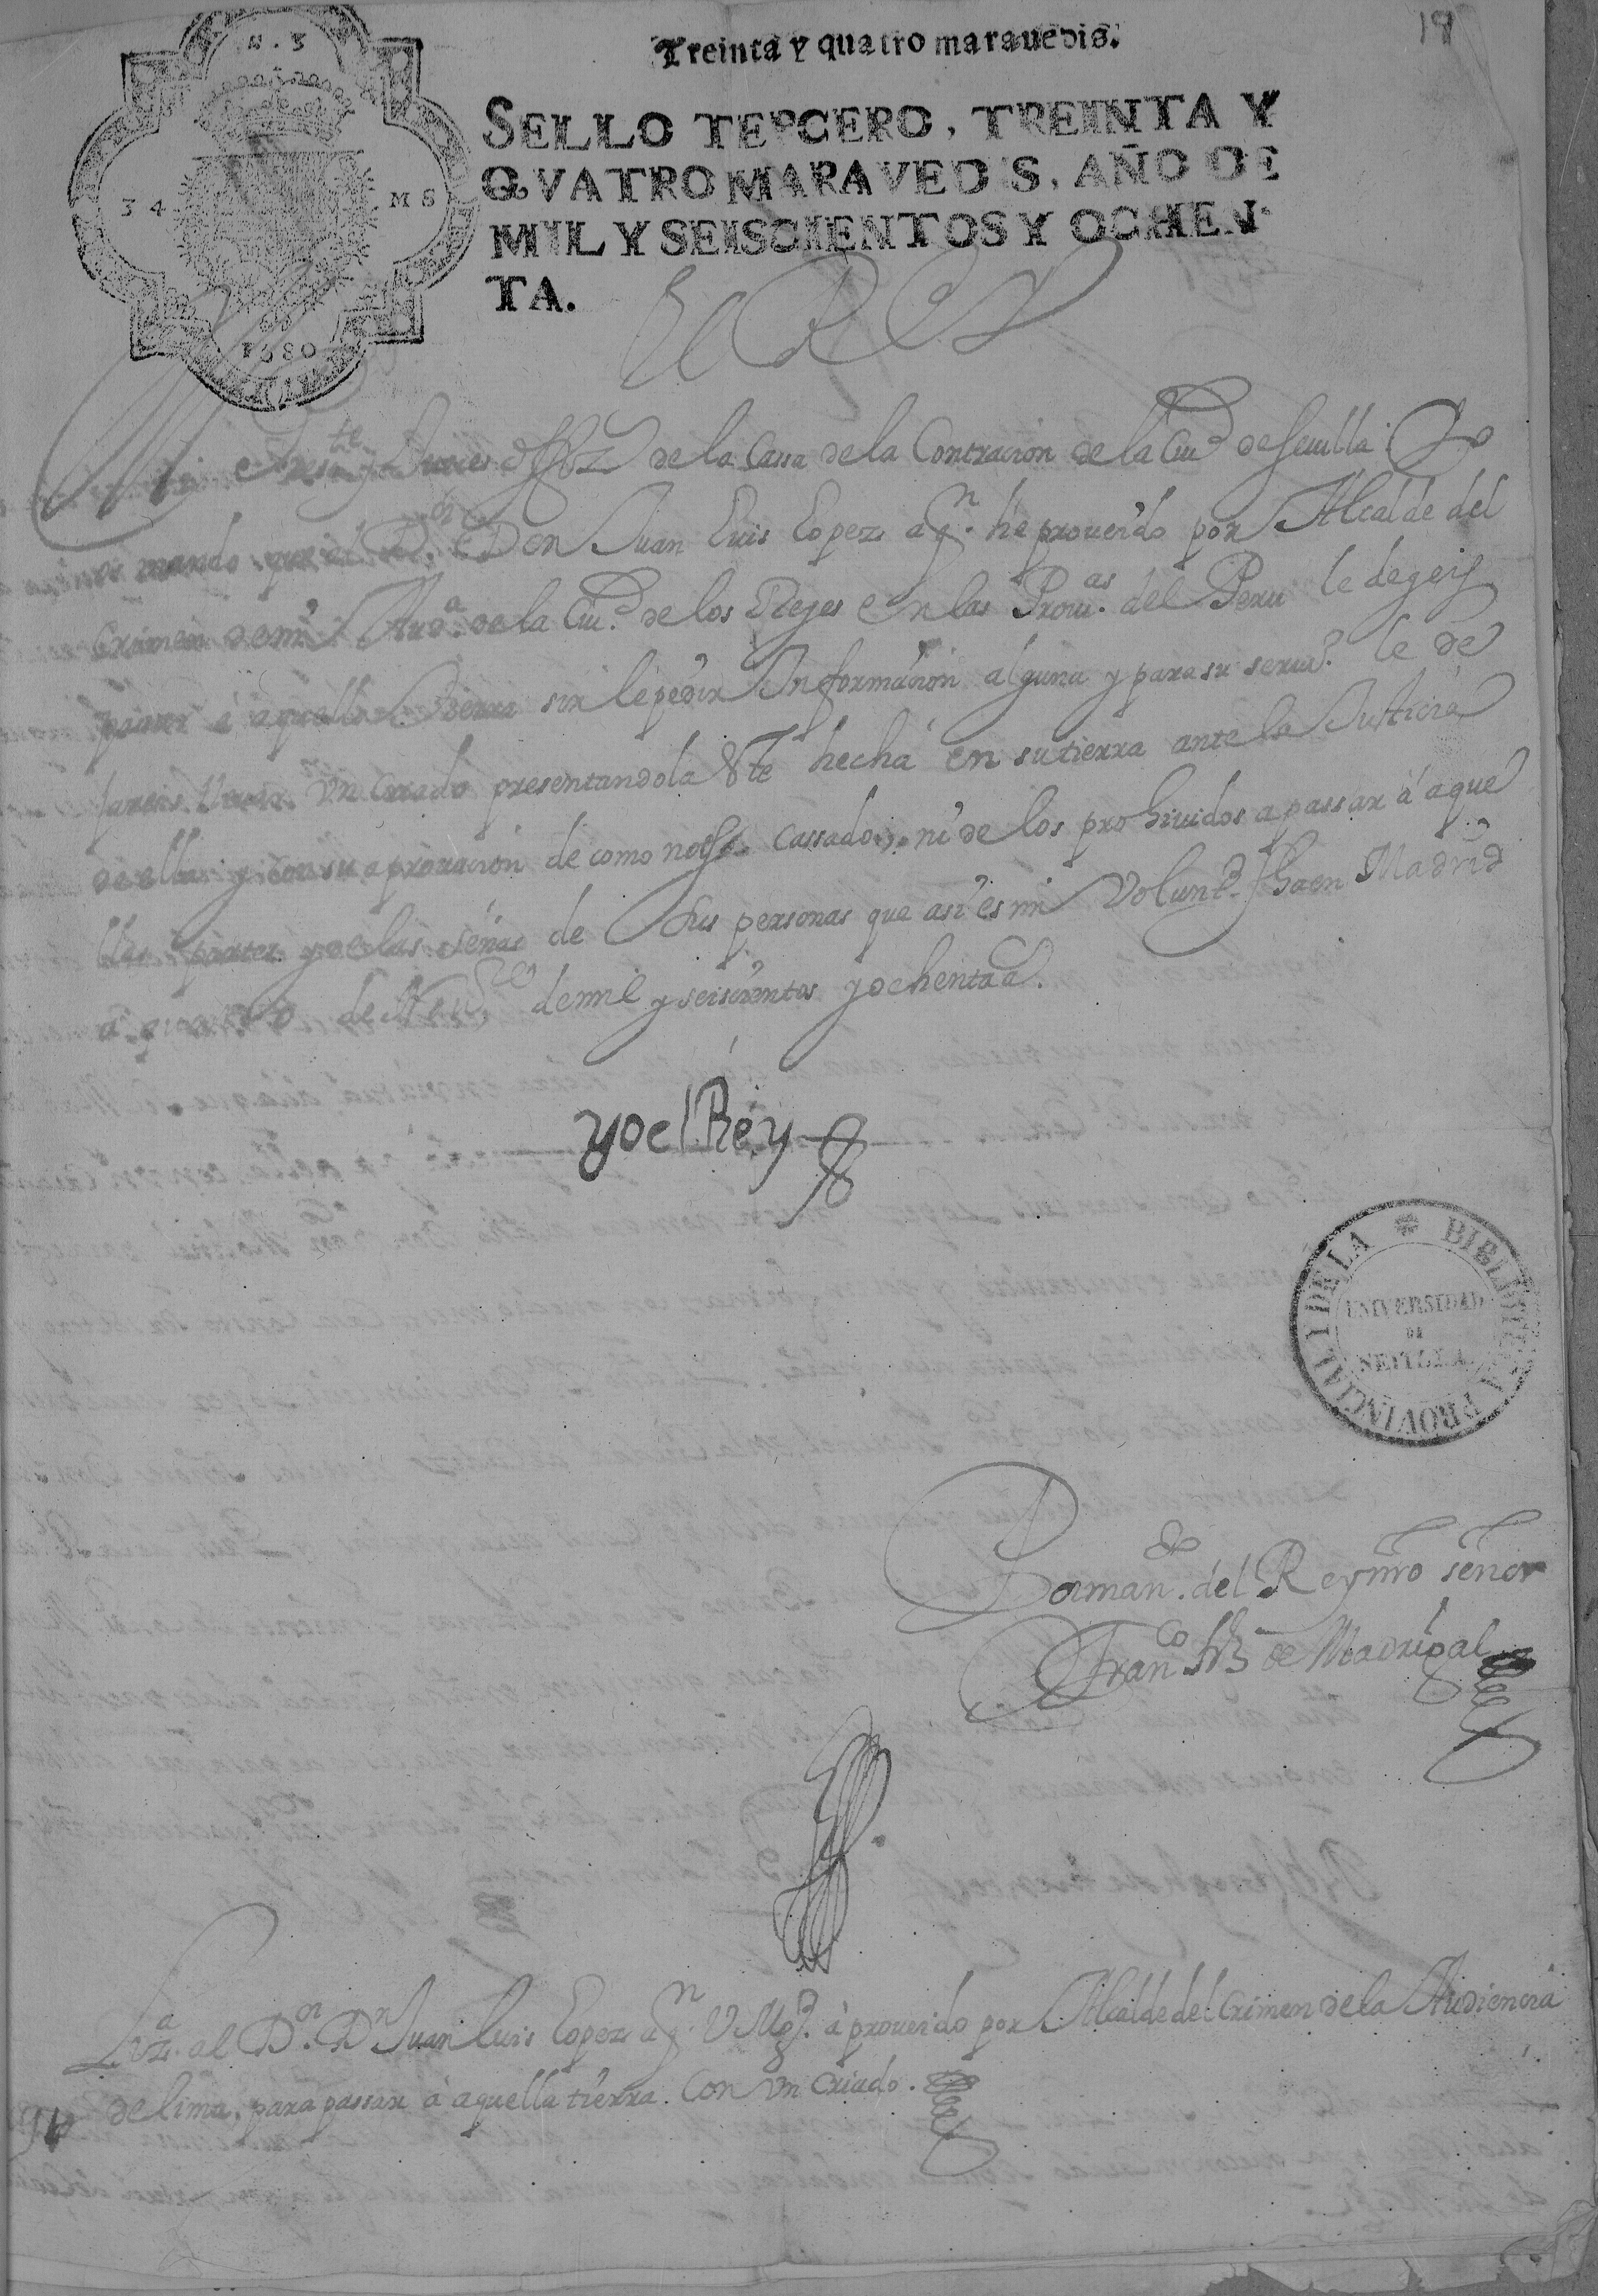 18
Treinta y quatro marauedis.
N. 3
34 MS
1680
SELLO TERCERO, TREINTA Y
QVATRO MARAVEDIS, AÑO DE
MIL Y SEISCIENTOS Y OCHEN-
TA.
El Rey
Press.te y Jueces offz.s de la Cassa de la Contratacion de la Ciu.d de Seuilla Yo
os mando que al D.or Don Juan Luis Lopez a q.n he proueido por Alcalde del
Crimen de mi Aud.a de la Ciu.d de los Reyes en las Prou.as del Peru le degeis
passar á aquella tierra sin le pedir Informacion alguna y para su serui.o le de
jareis lleuar Un Criado presentandola Vte hecha en su tierra ante la Justicia
de ella y con su aprouacion de como no es cassado, ni de los prohiuidos a passar á aque
llas partes y de las señas de Sus personas que assi es mi Volunt.d fha en Madrid
á quatro de Nou.re de mil y seiscientos y ochenta a.
yo el Rey
BIBLIOTECA PROVINCIAL I DE LA
UNIVERSIDAD
DE
SEVILLA
Por man.do del Rey nro señor
Fran.co frz de Madrigal
Liz.a al D.or D.n Juan Luis Lopez a q.n V Mg.d à proueido por Alcalde del Crimen de la Audiencia
de lima, para passar á aquella tierra. Con Un Criado.